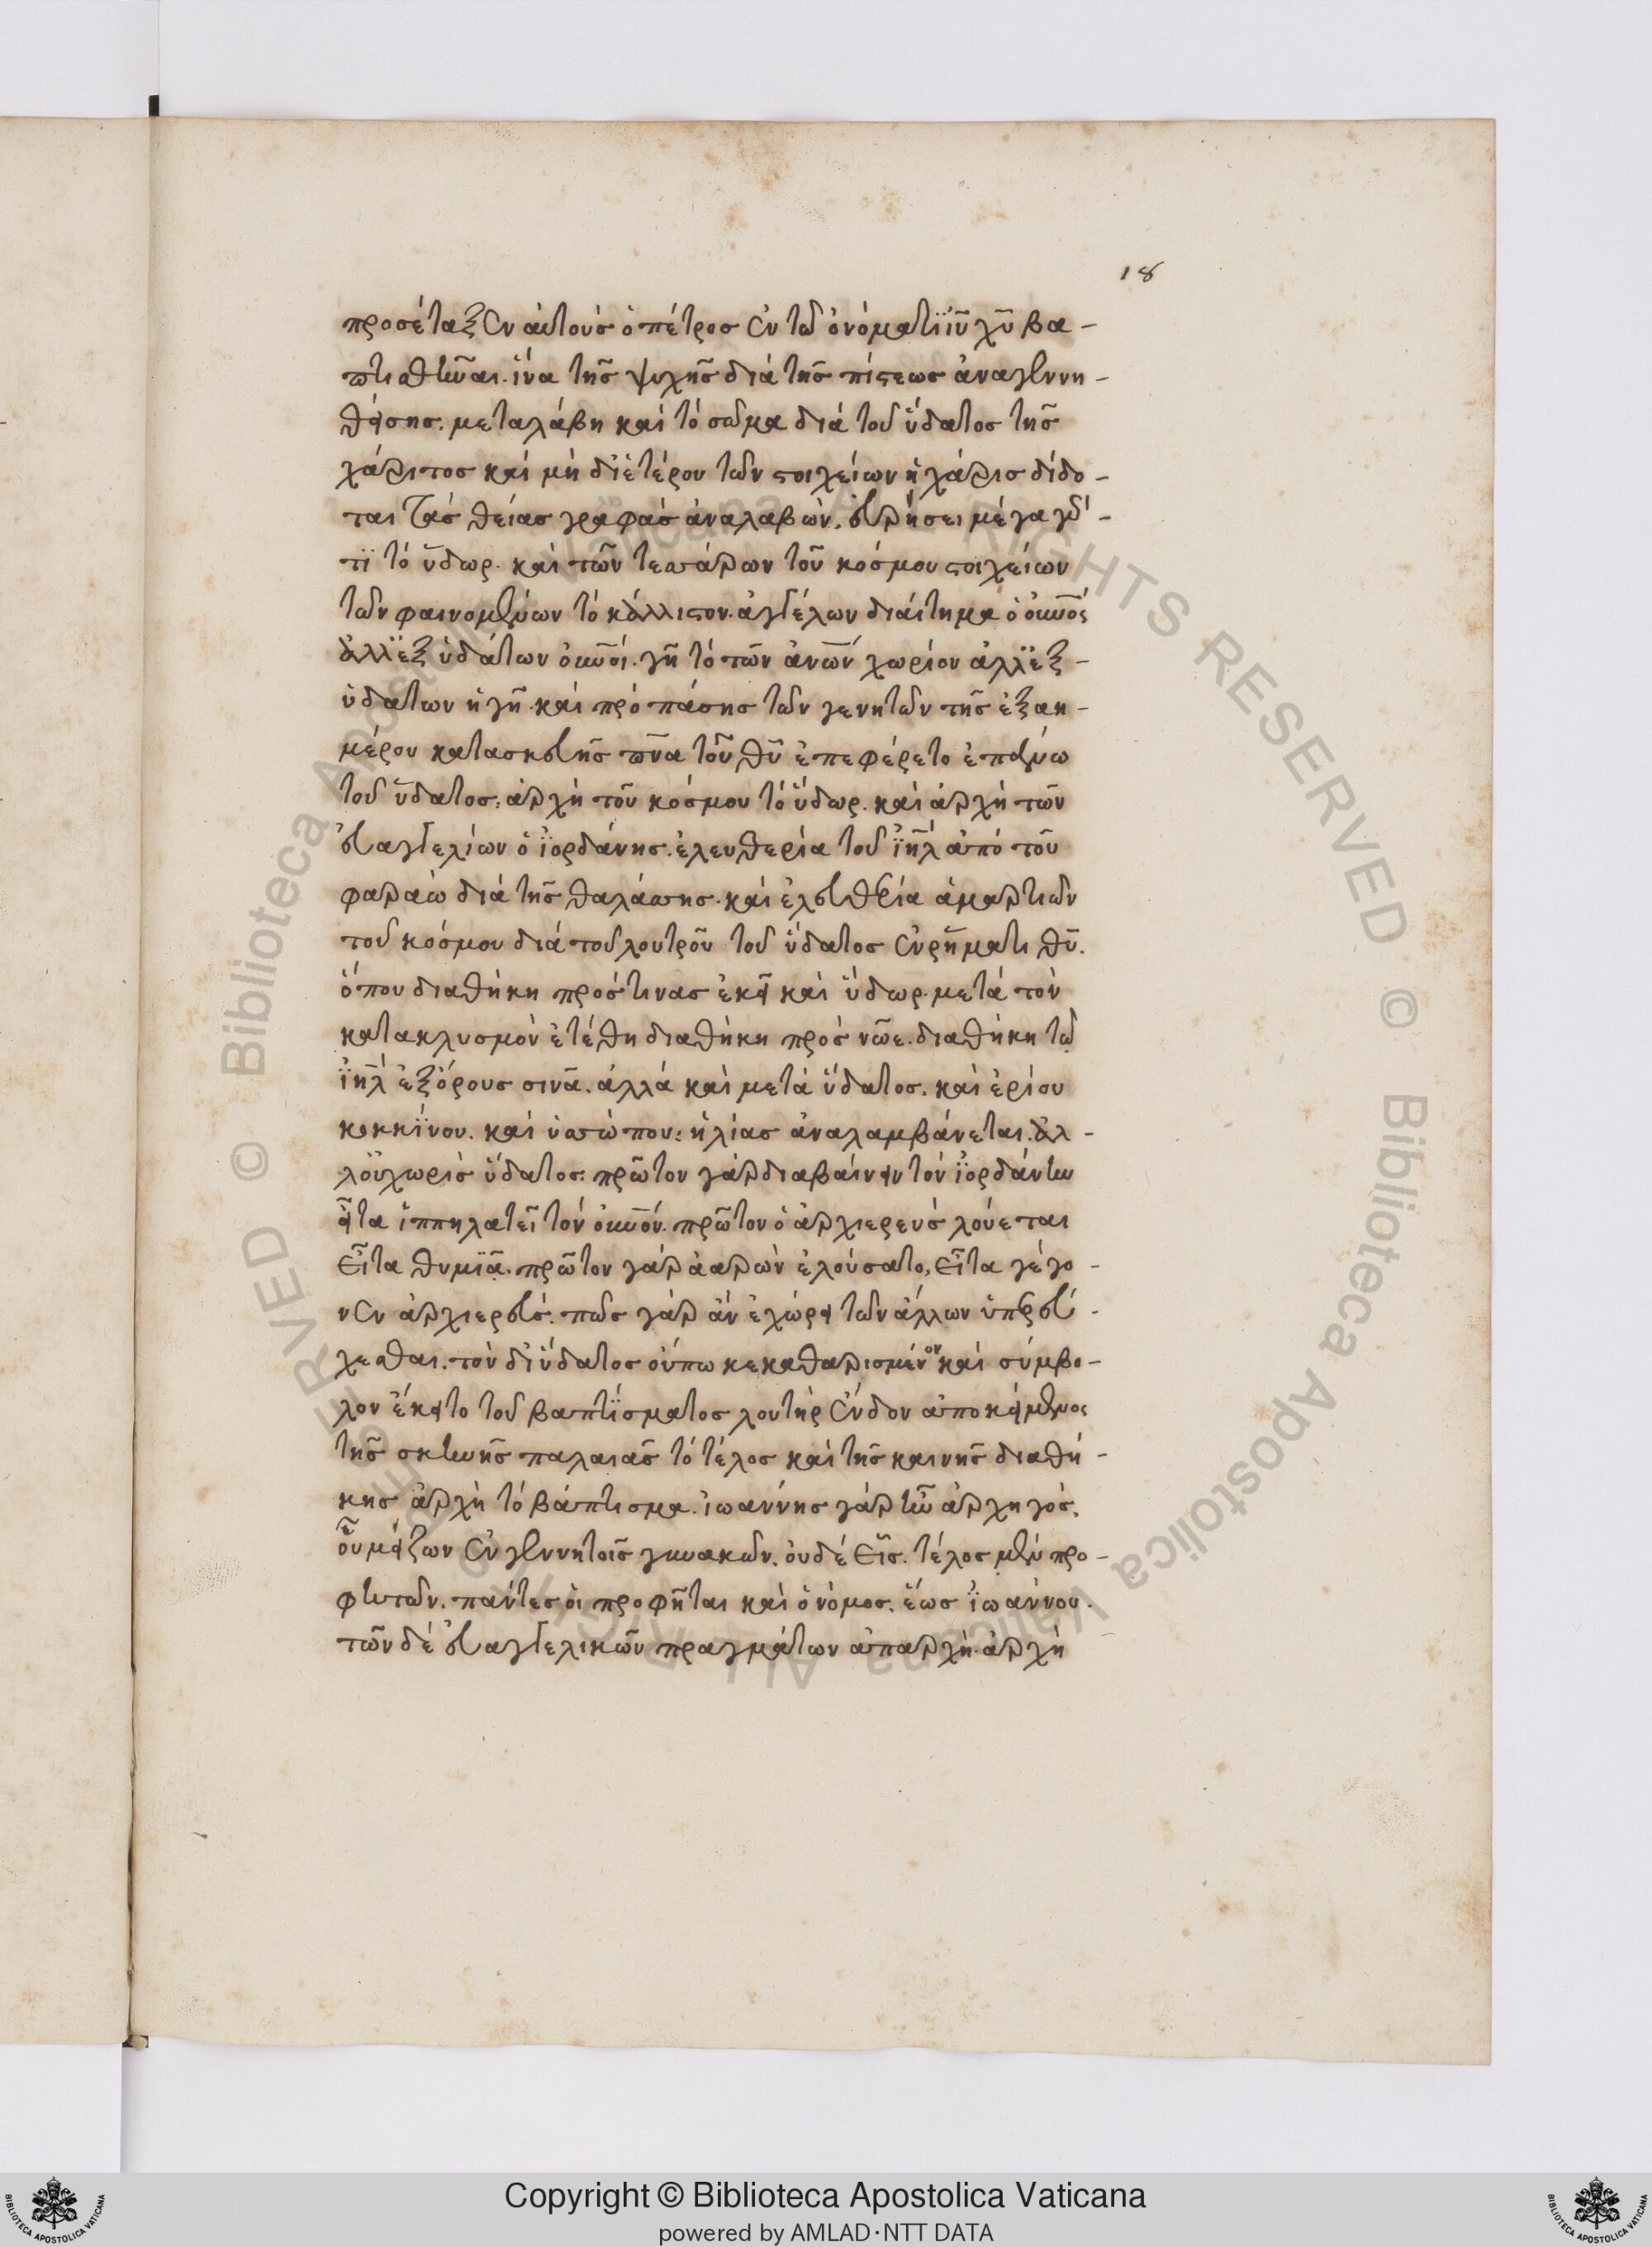 18
προσέταξεν αὐτοὺς ὁ πέτρος ἐν τῶ ὀνόματι ἰῡ χῡ βα-
πτισθῆναι. ἵνα τῆς ψυχῆς διὰ τῆς πίστεως ἀναγεννη-
θείσης. μεταλάβη καὶ τὸ σῶμα διὰ τοῦ ὕδατος τῆς
χάριτος καὶ μὴ δι ἑτέρου τῶν στοιχείων ἡ χάρις δίδο-
ται τὰς θείας γραφὰς ἀναλαβὼν. εὑρήσει μέγα γὰρ
τὶ τὸ ὕδωρ. καὶ τῶν τεσσάρων τοῦ κόσμου στοιχείων
τῶν φαινομένων τὸ κάλλιστον. ἀγγέλων διαίτημα ὁ οὐνος
ἀλλ ἐξ ὑδάτων οὐνοί. γῆ τὸ τῶν ἀνων χωρίον ἀλλ ἐξ-
ὑδάτων ἡ γῆ. καὶ πρὸ πάσης τῶν γενητῶν τῆς ἑξαη-
μέρου κατασκευῆς πνα τοῦ θῡ ἐπεφέρετο ἐπάνω
τοῦ ὕδατος: ἀρχὴ τοῦ κόσμου τὸ ὕδωρ. καὶ ἀρχὴ τῶν
εὐαγγελίων ὁ ἰορδάνης. ἐλευθερία τοῦ ἰηλ ἀπὸ τοῦ
φαραὼ διὰ τῆς θαλάσσης. καὶ ἐλευθερία ἁμαρτιῶν
τοῦ κόσμου διὰ τοῦ λουτροῦ τοῦ ὕδατος ἐν ρήματι θῡ.
ὅπου διαθήκη πρός τινας ἐκεῖ καὶ ὕδωρ. μετὰ τὸν
κατακλυσμὸν ἐτέθη διαθήκη πρὸς νῶε. διαθήκη τῶ
ἰηλ ἐξ ὄρους σινᾶ. ἀλλὰ καὶ μετὰ ὕδατος. καὶ ἐρίου
κοκκίνου. καὶ ὑσσώπου: ἡλίας ἀναλαμβάνεται. ἀλ-
λ οὐ χωρὶς ὕδατος: πρῶτον γὰρ διαβαίνειν τὸν ἰορδάνην
εἶτα ἱππηλατεῖ τὸν οὐνόν. πρῶτον ὁ ἀρχιερεὺς λούεται
εἶτα θυμιᾶ. πρῶτον γὰρ ἀαρὼν ἐλούσατο, εἶτα γέγο-
νεν ἀρχιερεύς. πῶς γὰρ ἂν ἐχώρει τῶν ἄλλων ὑπερεύ-
χεσθαι. τὸν δι ὕδατος οὔπω κεκαθαρισμένον καὶ σύμβο-
λον ἔκειτο τοῦ βαπτίσματος λουτὴρ ἔνδον ἀποκείμενος
τῆς σκηνῆς παλαιᾶς τὸ τέλος καὶ τῆς καινῆς διαθή-
κης ἀρχὴ τὸ βάπτισμα. ἰωάννης γὰρ ἦν ἀρχηγός.
οὗ μείζων ἐν γεννητοῖς γυναικῶν. οὐδὲ εἷς. τέλος μὲν προ-
φητῶν. πάντες οἱ προφῆται καὶ ὁ νόμος. ἕως ἰωάννου.
τῶν δὲ εὐαγγελικῶν πραγμάτων ἀπαρχὴ. ἀρχὴ
© Biblioteca Apostolica Vaticana ALL RIGHTS RESERVED © Biblioteca Apostolica Vaticana ALL RIGHTS RESERVED
Copyright © Biblioteca Apostolica Vaticana
powered by AMLAD·NTT DATA
BIBLIOTECA APOSTOLICA VATICANA
BIBLIOTECA APOSTOLICA VATICANA